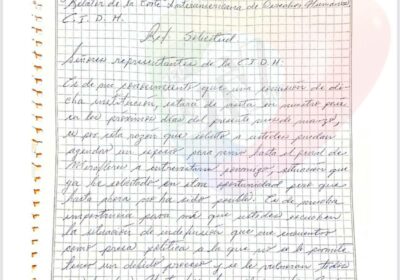 Relator de la Corte Interamericana de Derechos Humanos
C. I. D. H.
Ref. Solicitud
Señores representantes de la C.I.D.H:
Es de mi conocimiento que una comisión de di-
cha institución, estará de visita en nuestro país
en los próximos días del presente mes de marzo,
es por esta razón que solicito a ustedes puedan
agendar un espacio para venir hasta el penal de
Miraflores a entrevistarse conmigo, situación que
ya he solicitado en otra oportunidad pero que
hasta ahora no ha sido posible. Es de mucha
importancia para mí que ustedes escuchen
la situación de indefensión que me encuentro
como presa política a la que no se le permite
tener un debido proceso y se le vulneran todos